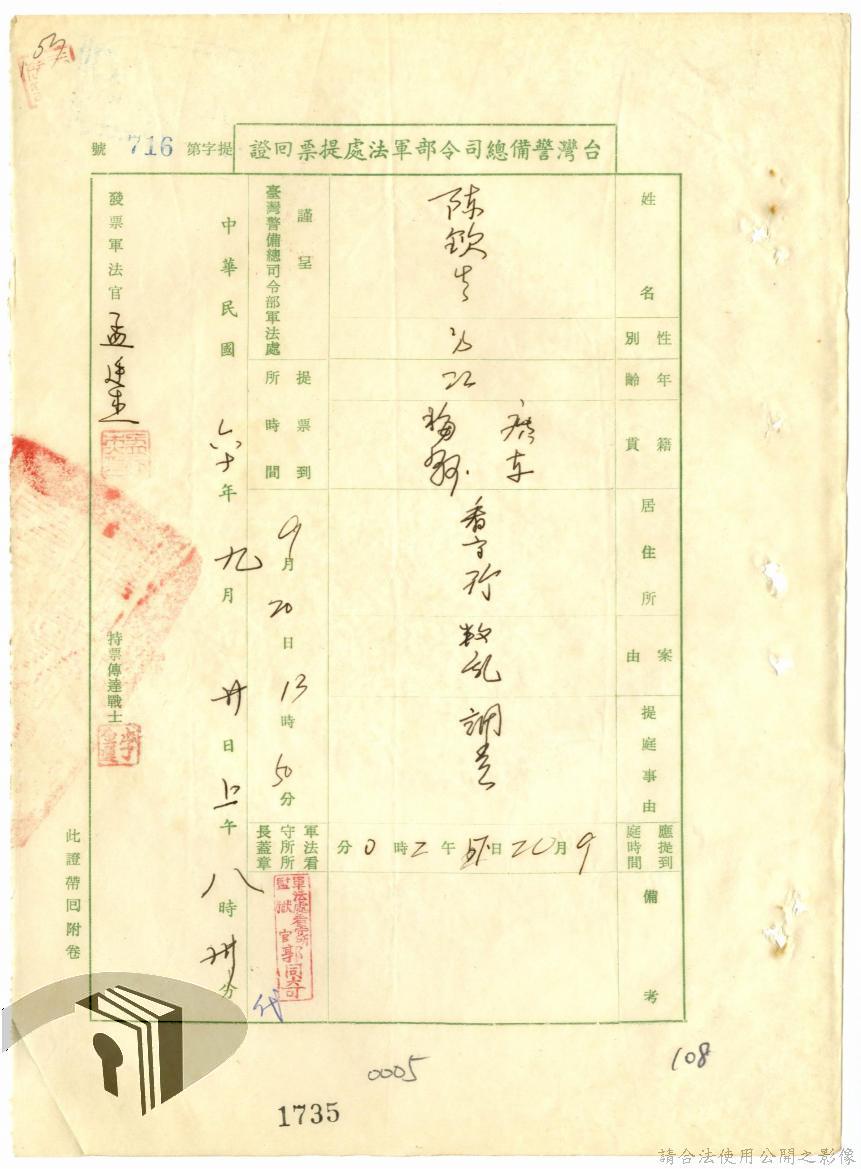 台灣警備總司令部軍法處提票回證
提字第 716 號
姓名
陈欽生
性別
男
年齡
22
籍貫
廣东
梅縣
居住所
看守所
案由
叛乱
提庭事由
調查
應提到庭時間
9月20日下午2時0分
備考
謹呈
臺灣警備總司令部軍法處
提票到所時間
9月20日13時50分
軍法看守所所長蓋章
軍法處看守所
監獄官郭同奇
代
中華民國六十年九月廿日上午八時卅分
發票軍法官
孟廷杰
持票傳達戰士
此證帶回附卷
0005
108
1735
請合法使用公開之影像